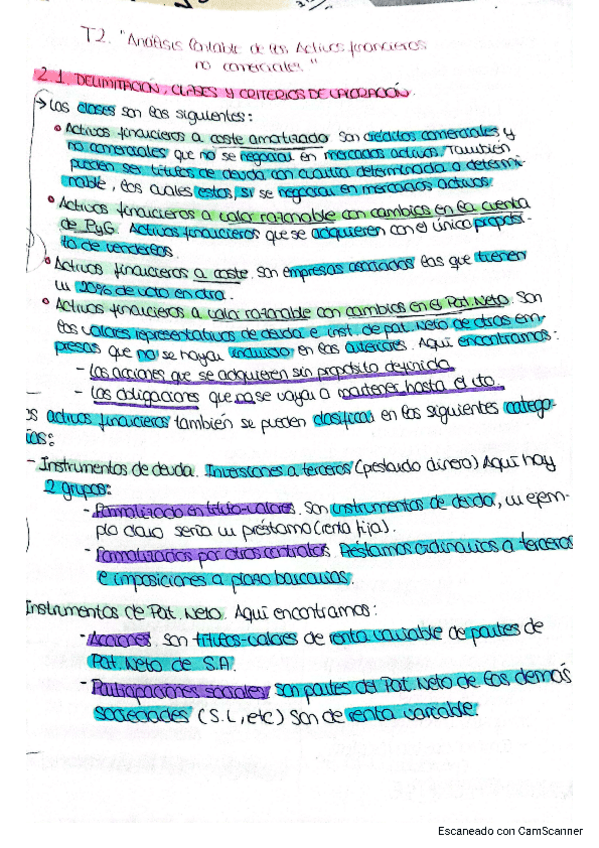 T2. "Análisis Contable de los Activos financieros
no comerciales."
2.1. DELIMITACIÓN, CLASES Y CRITERIOS DE VALORACIÓN.
→ Las clases son las siguientes:
• Activos financieros a coste amortizado. Son créditos comerciales y
no comerciales que no se negocian en mercados activos. También
pueden ser títulos de deuda con cuantía determinada o determi-
nable, los cuales estos, sí se negocian en mercados activos.
• Activos financieros a valor razonable con cambios en la cuenta
de PyG. Activos financieros que se adquieren con el único propósi-
to de venderlos.
• Activos financieros a coste. Son empresas asociadas las que tienen
un 20% de voto en otra.
• Activos financieros a valor razonable con cambios en el Pat. Neto. Son
los valores representativos de deuda e inst. de pat. Neto de otras em-
presas que no se hayan incluido en los anteriores. Aquí encontramos:
- Las acciones que se adquieren sin propósito definido.
- Las obligaciones que no se vayan a mantener hasta el vto.
os activos financieros también se pueden clasificar en las siguientes catego-
ías:
- Instrumentos de deuda. Inversiones a terceros (prestando dinero) Aquí hay
2 grupos:
- Formalizado en título-valores. Son instrumentos de deuda, un ejem-
plo claro sería un préstamo (renta fija).
- Formalizados por otros contratos. Préstamos ordinarios a terceros
e imposiciones a plazo bancarias.
Instrumentos de Pat. Neto. Aquí encontramos:
- Acciones, son títulos-valores de renta variable de partes de
Pat. Neto de S.A.
- Participaciones sociales, son partes del Pat. Neto de las demás
sociedades (S.L, etc) Son de renta variable.
Escaneado con CamScanner